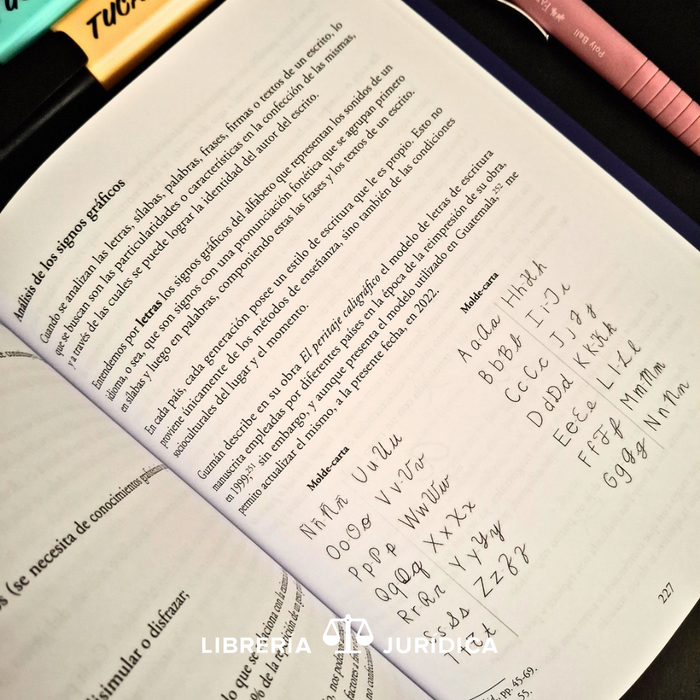 TUCA
Poly Ball
Análisis de los signos gráficos
Cuando se analizan las letras, sílabas, palabras, frases, firmas o textos de un escrito, lo
que se buscan son las particularidades o características en la confección de las mismas,
y a través de las cuales se puede lograr la identidad del autor del escrito.
Entendemos por letras los signos gráficos del alfabeto que representan los sonidos de un
idioma, o sea, que son signos con una pronunciación fonética que se agrupan primero
en sílabas y luego en palabras, componiendo estas las frases y los textos de un escrito.
En cada país, cada generación posee un estilo de escritura que le es propio. Esto no
proviene únicamente de los métodos de enseñanza, sino también de las condiciones
socioculturales del lugar y el momento.
Guzmán describe en su obra El peritaje caligráfico el modelo de letras de escritura
manuscrita empleadas por diferentes países en la época de la reimpresión de su obra,
en 1999;251 sin embargo, y aunque presenta el modelo utilizado en Guatemala,252 me
permito actualizar el mismo, a la presente fecha, en 2022.
Molde-carta
A a A a H h H h
B b B b I i I i
C c C c J j J j
D d D d K k K k
E e E e L l L l
F f F f M m M m
G g G g N n N n
Molde-carta
Ñ ñ Ñ ñ U u U u
O o O o V v V v
P p P p W w W w
Q q Q q X x X x
R r R r Y y Y y
S s S s Z z Z z
T t
pp. 45-69.
55.
227
s (se necesita de conocimientos
disimular o disfrazar,
lo que se relaciona con la
% de la repetición de un
LIBRERIA JURIDICA